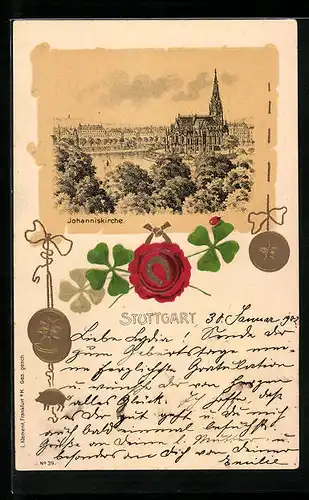 Johanniskirche.
STUTTGART
30. Januar 1902
Liebe Lydia! Sende dir
zum Geburtstage meine
herzlichste Gratulation
u. wünscht dir von Herzen
alles Glück. Ich hoffe, dass
es dir gut geht u du mich
auch bald einmal besuchst
Grüße an Deine l. Mutter u
besonders an dich von deiner
Emilie.
Nº 39.
L. Klement, Frankfurt a/M. Ges. gesch.